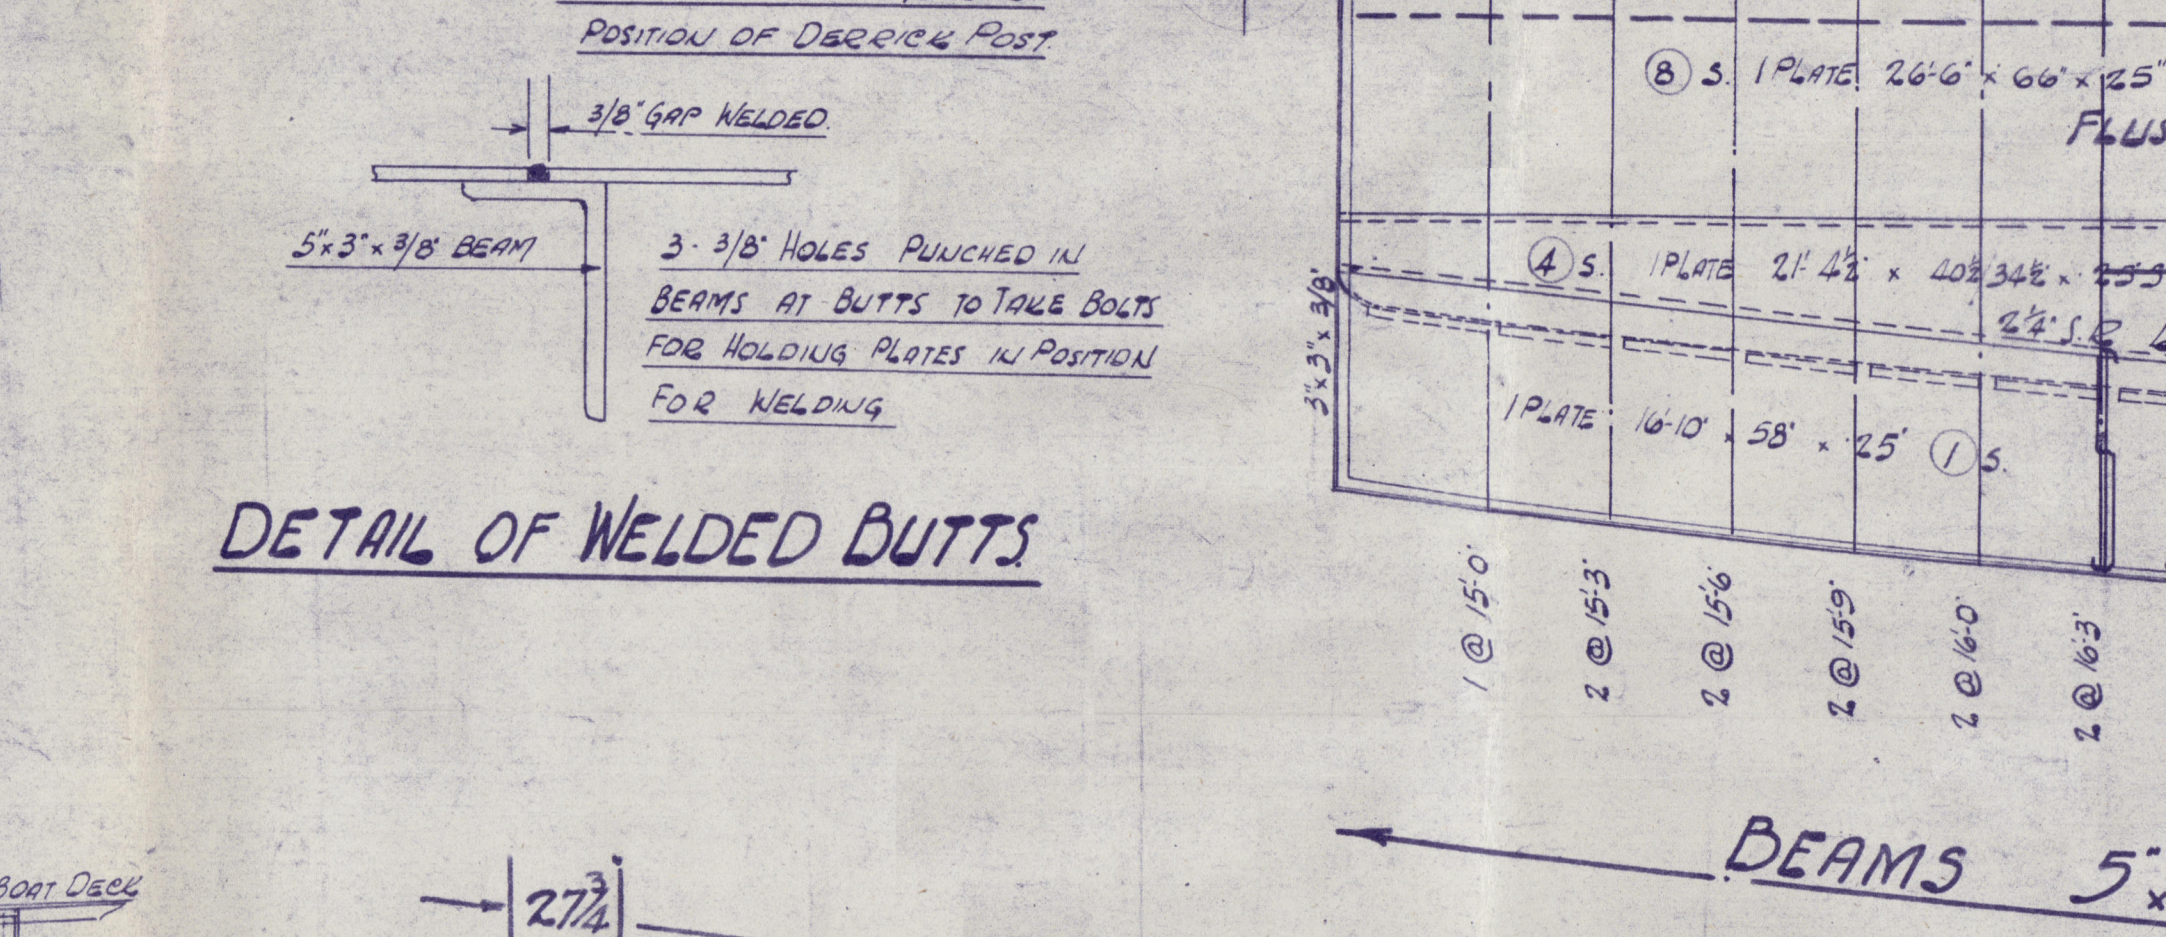 POSITION OF DERRICK POST.
3/8" GAP WELDED.
5"x 3"x 3/8" BEAM
3 - 3/8" HOLES PUNCHED IN
BEAMS AT BUTTS TO TAKE BOLTS
FOR HOLDING PLATES IN POSITION
FOR WELDING
DETAIL OF WELDED BUTTS.
8 S. 1 PLATE 26'-6" x 66" x 25"
4 S. 1 PLATE 21'-4½" x 40½"/34½" x
2¼" S.R.
3"x 3" x 3/8"
1 PLATE 16'-10" x 58" x ·25" 1 S.
1 @ 15'-0"
2 @ 15'-3"
2 @ 15'-6"
2 @ 15'-9"
2 @ 16'-0"
2 @ 16'-3"
BEAMS 5" x
27¾
BOAT DECK